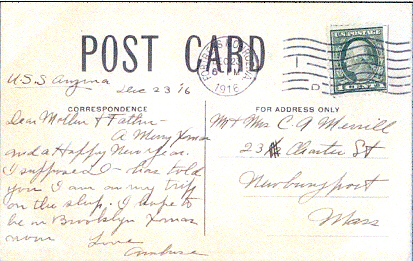 POST CARD
FORTRESS MONROE, VA.
DEC 23
6 PM
1916
1 CENT 1
U.S.S.
Dec 23 16
CORRESPONDENCE
FOR ADDRESS ONLY
Dear Mother & Father—
A Merry Xmas
and a Happy New year.
I suppose I— has told
you I am on my trip
on the ship. I hope to
be in Brooklyn Xmas
morn
Love
Ambrose
Mr & Mrs C. A Merrill
23 Charter St
Newburyport
Mass